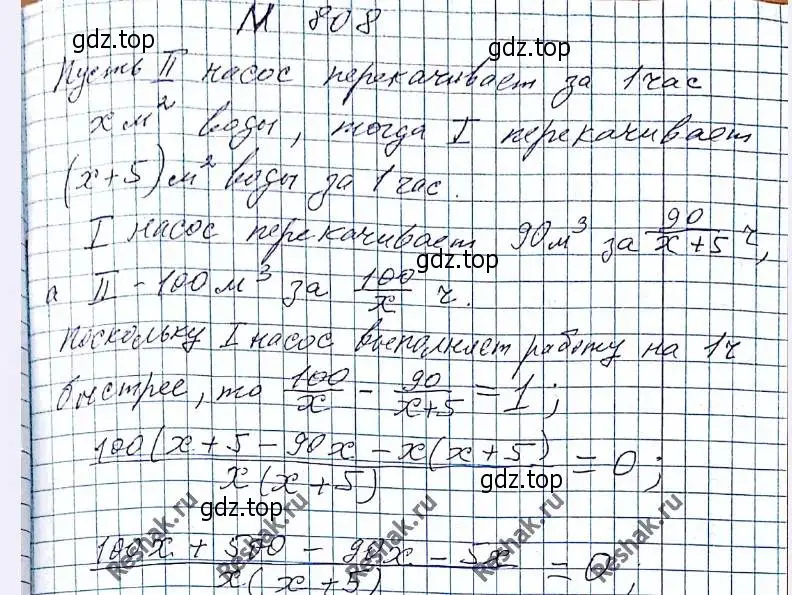 № 808
gdz.top
Пусть II насос перекачивает за 1 час
x м² воды, тогда I перекачивает
(x+5) м² воды за 1 час.
I насос перекачивает 90 м³ за 90/(x+5) ч,
gdz.top
а II - 100 м³ за 100/x ч.
Поскольку I насос выполняет работу на 1 ч
быстрее, то 100/x - 90/(x+5) = 1;
gdz.top
(100(x+5 - 90x - x(x+5))/(x(x+5)) = 0;
gdz.top
gdz.top
Reshak.ru Reshak.ru Reshak.ru Reshak.ru Reshak.ru
(100x + 500 - 90x - 5x)/(x(x+5)) = 0;